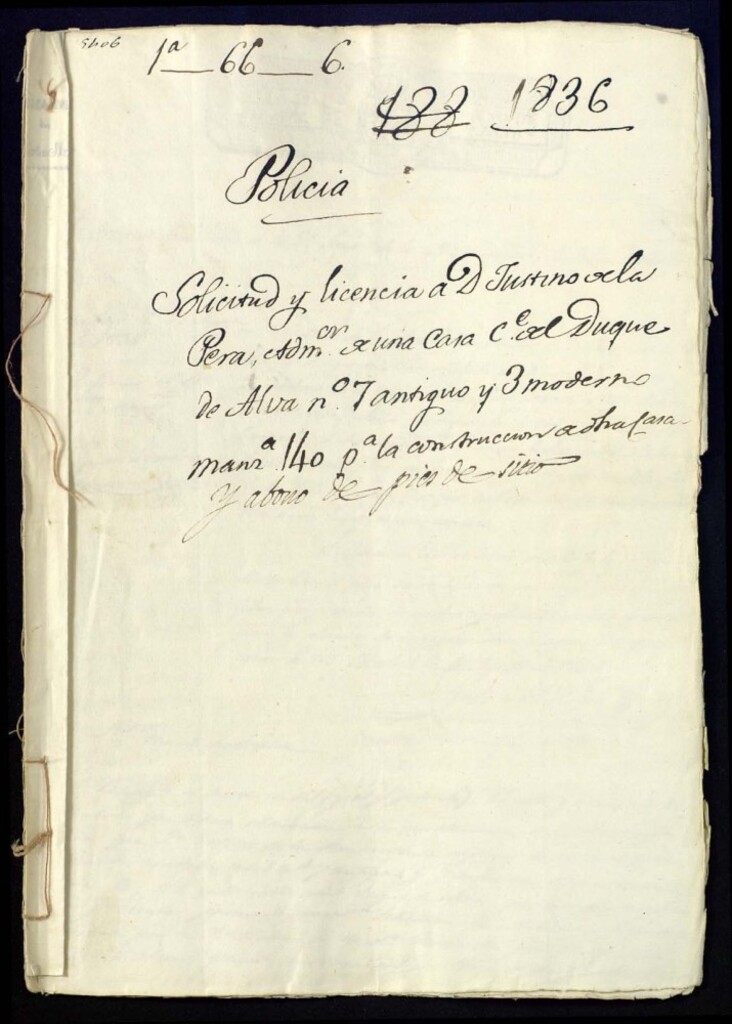 1ª 66 6.
188 1836
Policia
Solicitud y licencia a D Justino de la
Pera, Adm.on de una Casa C.e del Duque
de Alva n.o 7 antiguo y 3 moderno
manz.a 140 p.a la construccion de dha Casa
Y abono de pies de sitio